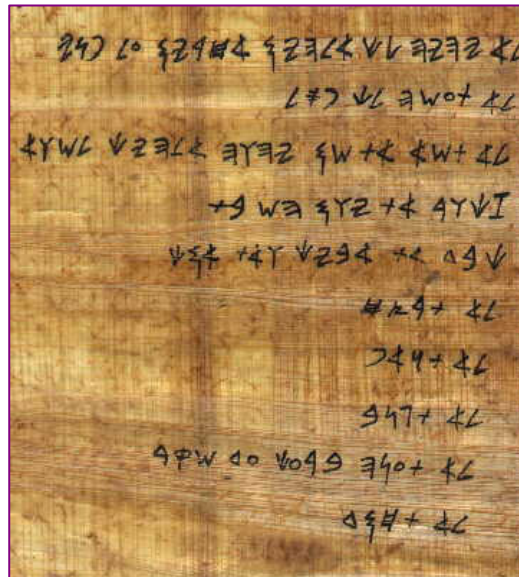 𐤋𐤀 𐤉𐤄𐤉𐤄 𐤋𐤊 𐤀𐤋𐤄𐤉𐤌 𐤀𐤇𐤓𐤉𐤌 𐤏𐤋 𐤐𐤍𐤉
𐤋𐤀 𐤕𐤏𐤔𐤄 𐤋𐤊 𐤐𐤎𐤋
𐤋𐤀 𐤕𐤔𐤀 𐤀𐤕 𐤔𐤌 𐤉𐤄𐤅𐤄 𐤀𐤋𐤄𐤉𐤊 𐤋𐤔𐤅𐤀
𐤆𐤊𐤅𐤓 𐤀𐤕 𐤉𐤅𐤌 𐤄𐤔𐤁𐤕
𐤊𐤁𐤃 𐤀𐤕 𐤀𐤁𐤉𐤊 𐤅𐤀𐤕 𐤀𐤌𐤊
𐤋𐤀 𐤕𐤓𐤑𐤇
𐤋𐤀 𐤕𐤍𐤀𐤐
𐤋𐤀 𐤕𐤂𐤍𐤁
𐤋𐤀 𐤕𐤏𐤍𐤄 𐤁𐤓𐤏𐤊 𐤏𐤃 𐤔𐤒𐤓
𐤋𐤀 𐤕𐤇𐤌𐤃